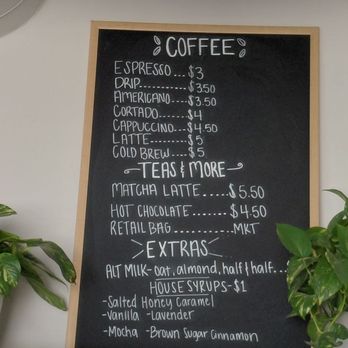 COFFEE
ESPRESSO...$3
DRIP...........$3.50
AMERICANO...$3.50
CORTADO.....$4
CAPPUCCINO...$4.50
LATTE........$5
COLD BREW...$5
TEAS & MORE
MATCHA LATTE.....$5.50
HOT CHOCOLATE......$4.50
RETAIL BAG..........MKT
EXTRAS
ALT MILK-oat, almond, half & half...
HOUSE SYRUPS-$1
-Salted Honey Caramel
-Vanilla -Lavender
-Mocha -Brown Sugar Cinnamon